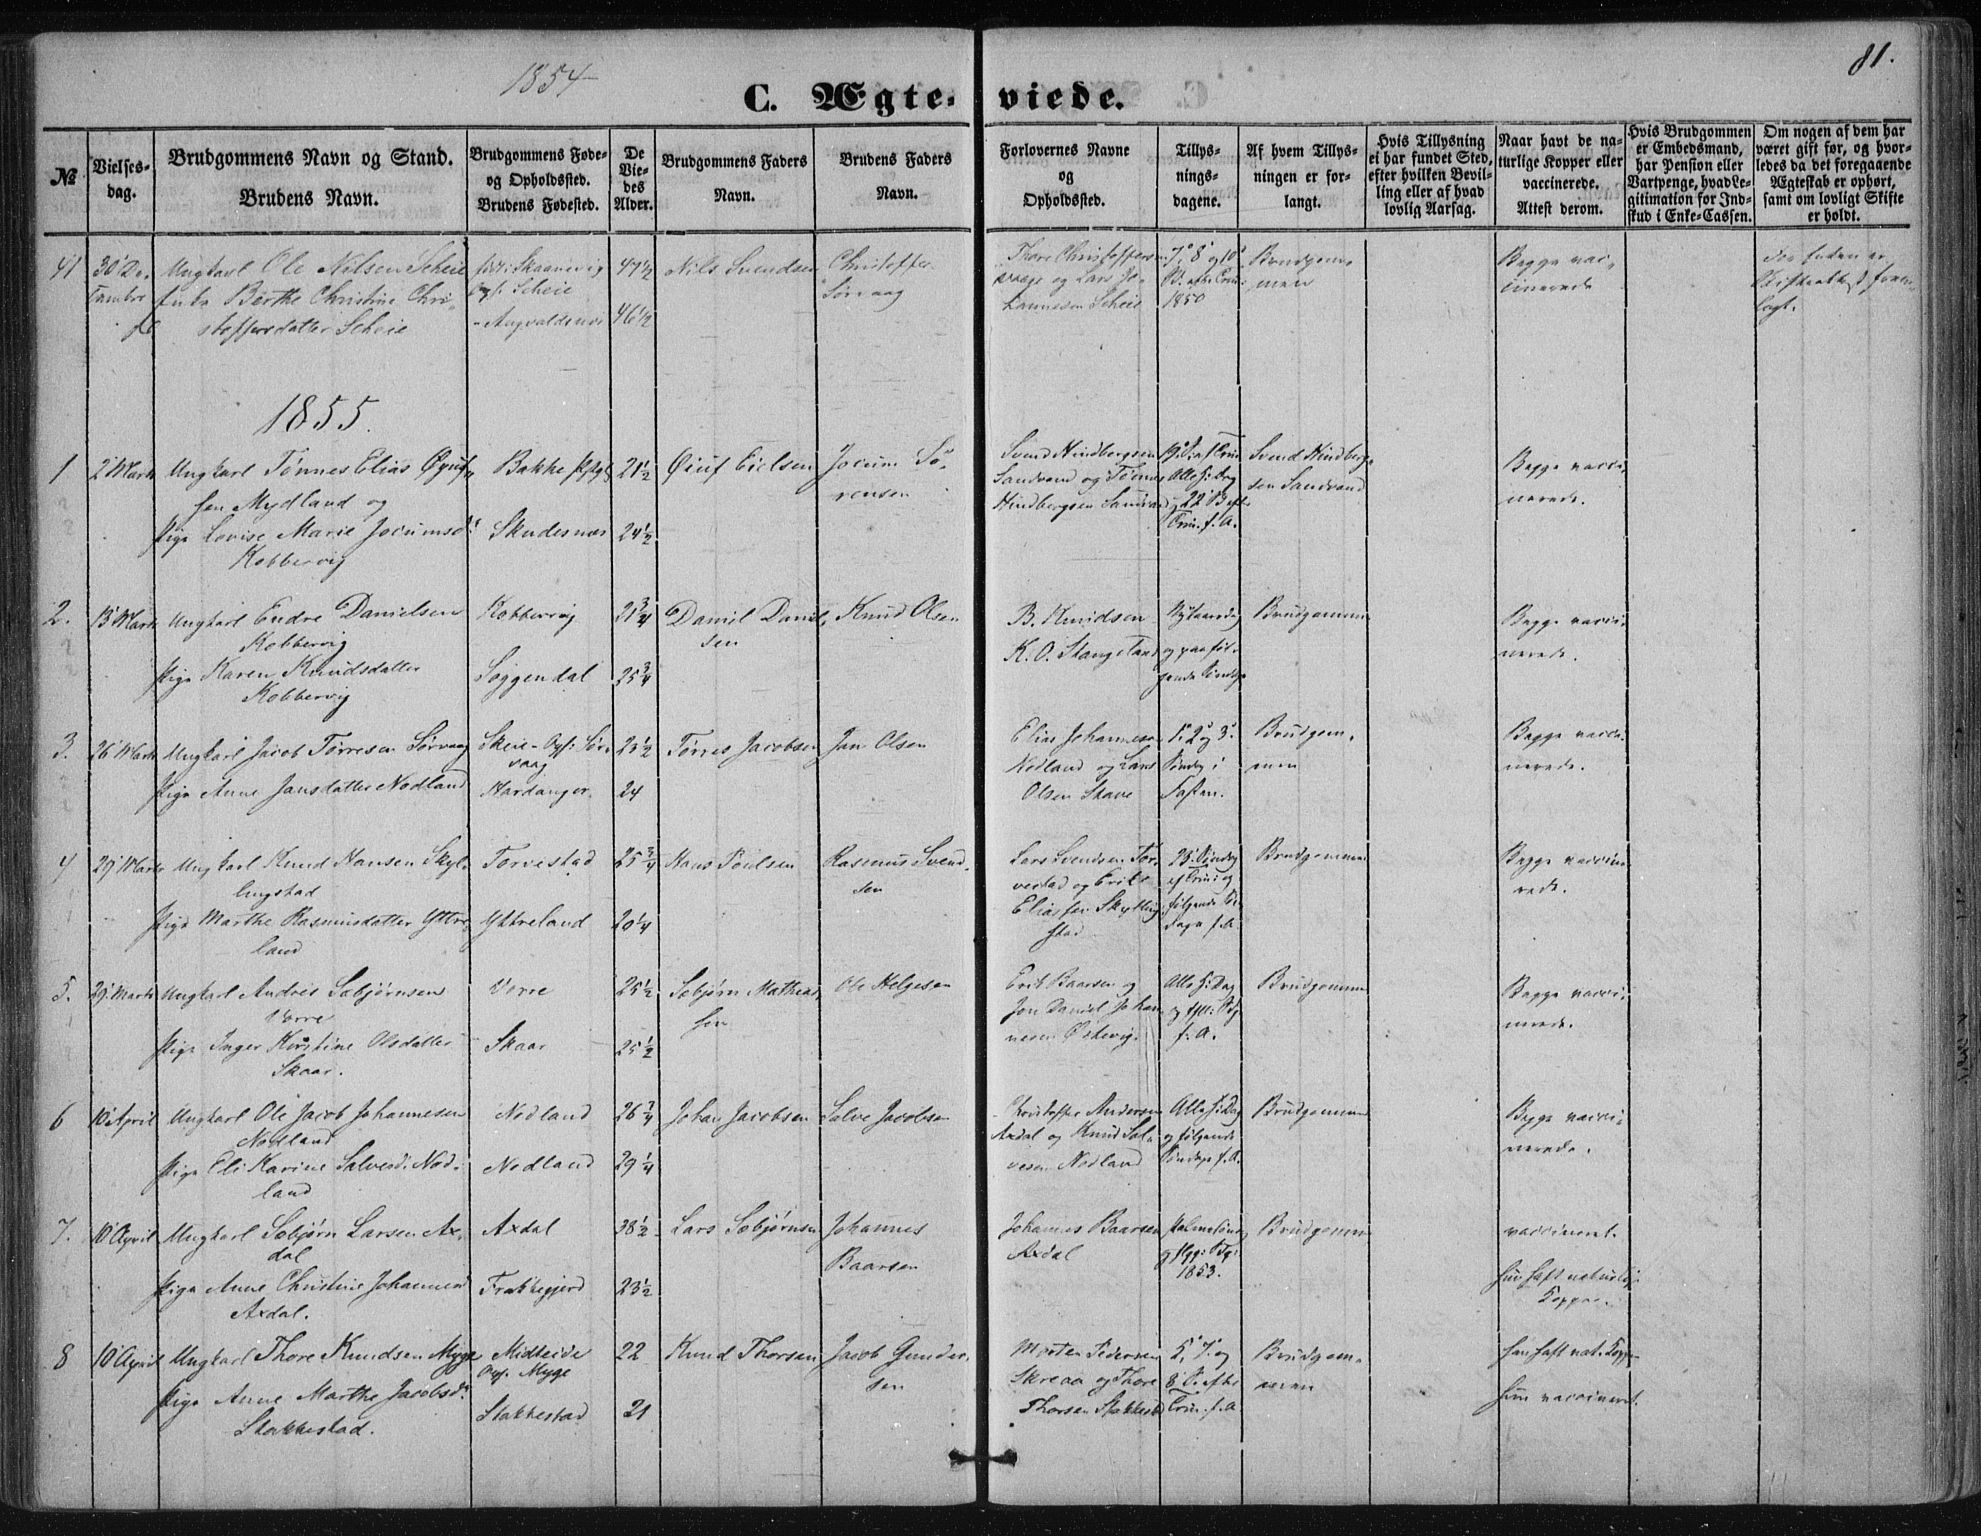 81.
1854
C. Ægte-viede.
№
Vielses-
dag.
Brudgommens Navn og Stand.
Brudens Navn.
Brudgommens Føde-
og Opholdssted.
Brudens Fødested.
De
Vie-
des
Alder.
Brudgommens Faders
Navn.
Brudens Faders
Navn.
Forlovernes Navne
og
Opholdssted.
Tillys-
nings-
dagene.
Af hvem Tillys-
ningen er for-
langt.
Hvis Tillysning
ei har fundet Sted,
efter hvilken Bevil-
ling eller af hvad
lovlig Aarsag.
Naar havt de na-
turlige Kopper eller
vaccinerede.
Attest derom.
Hvis Brudgommen
er Embedsmand,
har Pension eller
Vartpenge, hvad Le-
gitimation for Ind-
skud i Enke-Cassen.
Om nogen af dem har
været gift før, og hvor-
ledes da det foregaaende
Ægteskab er ophørt,
samt om lovligt Skifte
er holdt.
41
Ungkarl Ole Nilsen Scheie
Enke Berthe Christine Chri-
stoffersdatter Scheie
Skaanevig
Scheie
47½
46½
Nils Svendsen
Christoffer
Sørvaag
Thore Christoffersen
og Lars Jo-
hannesen Scheie
7', 8' og 10'
1850
Brudgom-
men
Begge vac-
cinerede
1855.
1
2' Marts
Ungkarl Tønnes Elias Øiuf-
sen Mydland og
Pige Lovise Marie Jocumsd.
Kobbervig
Bakke
Skudesnæs
21½
24½
Øiuf Eielsen
Jocum Sø-
rensen
Svend Hindbergsen
Sandvand og Tønnes
Hindbergsen Sandvand
Trin. f. A.
Svend Hindberg-
sen Sandvand
Begge vacci-
nerede.
2.
13' Marts
Ungkarl Endre Danielsen
Kobbervig
Pige Karen Knudsdatter
Kobbervig
Kobbervig
Soggendal
21¾
25¾
Daniel Daniel-
sen
Knud Olsen
B. Knudsen
K. O. Stangeland
Nytaarsdag
og paaføl-
gende Søndage
Brudgommen
Begge vacci-
nerede.
3.
26' Marts
Ungkarl Jacob Tørresen Sørvaag
Pige Anne Jansdatter Nodland
Skeie - Oph: Sør-
vaag
Hardanger.
23½
24
Tørres Jacobsen
Jan Olsen
Elias Johannesen
Nodland og Lars
Olsen Stave
1', 2' og 3'
Søndag i
Fasten.
Brudgom-
men
Begge vacci-
nerede.
4
29' Marts
Ungkarl Knud Hansen Skyl-
lingstad
Pige Marthe Rasmusdatter Yttre-
land
Torvestad
Yttreland
25¾
20¼
Hans Poulsen
Rasmus Svend-
sen
Lars Svendsen Tor-
vestad og Erik
Eliassen Skylling-
stad
23' Søndag
ef Trin: og
følgende Sø-
dage f. A.
Brudgommen
Begge vaccine-
rede.
5.
29' Marts
Ungkarl Andreas Sæbjørnsen
Vorre
Pige Inger Kirstine Olsdatter
Skaar.
Vorre
Skaar
25½
25½
Sæbjørn Mathias-
sen
Ole Helgesen
Erik Baarsen og
Jon Daniel Johan-
nesen Østevig.
Alle H: Dag
f: A.
Brudgommen
Begge vacci-
nerede.
6
10' April
Ungkarl Ole Jacob Johannesen
Nodland
Pige Eli Karine Salvesd. Nod-
land
Nodland
Nodland
26¾
29¼
Johan Jacobsen
Salve Jacobsen
Christoffer Andersen
Axdal og Knud Sal-
vesen Nodland
Alle H: Dag
og følgende
Søndage f. A.
Brudgommen
Begge vacci-
nerede.
7.
10' April
Ungkarl Sæbjørn Larsen Ax-
dal
Pige Anne Christine Johannesd
Axdal.
Axdal
Frakkegjerd
38½
23½
Lars Sæbjørnsen
Johannes
Baarsen
Johannes Baarsen
Axdal
Palmesøndag
1853.
Brudgommen
vaccineret.
hun haft naturlige
Kopper.
8
10' April
Ungkarl Thore Knudsen Myge
Pige Anne Marthe Jacobsd.
Stakkestad.
Midteide
Oph. Myge
Stakkestad
22
21
Knud Thorsen
Jacob Gunder-
sen
Morten Pedersen
Skreaa og Thore
Thorsen Stakkestad
5', 7' og
8' S. efter
Trin. f. A.
Brudgom-
men
han haft nat. Kopper
hun vaccineret.